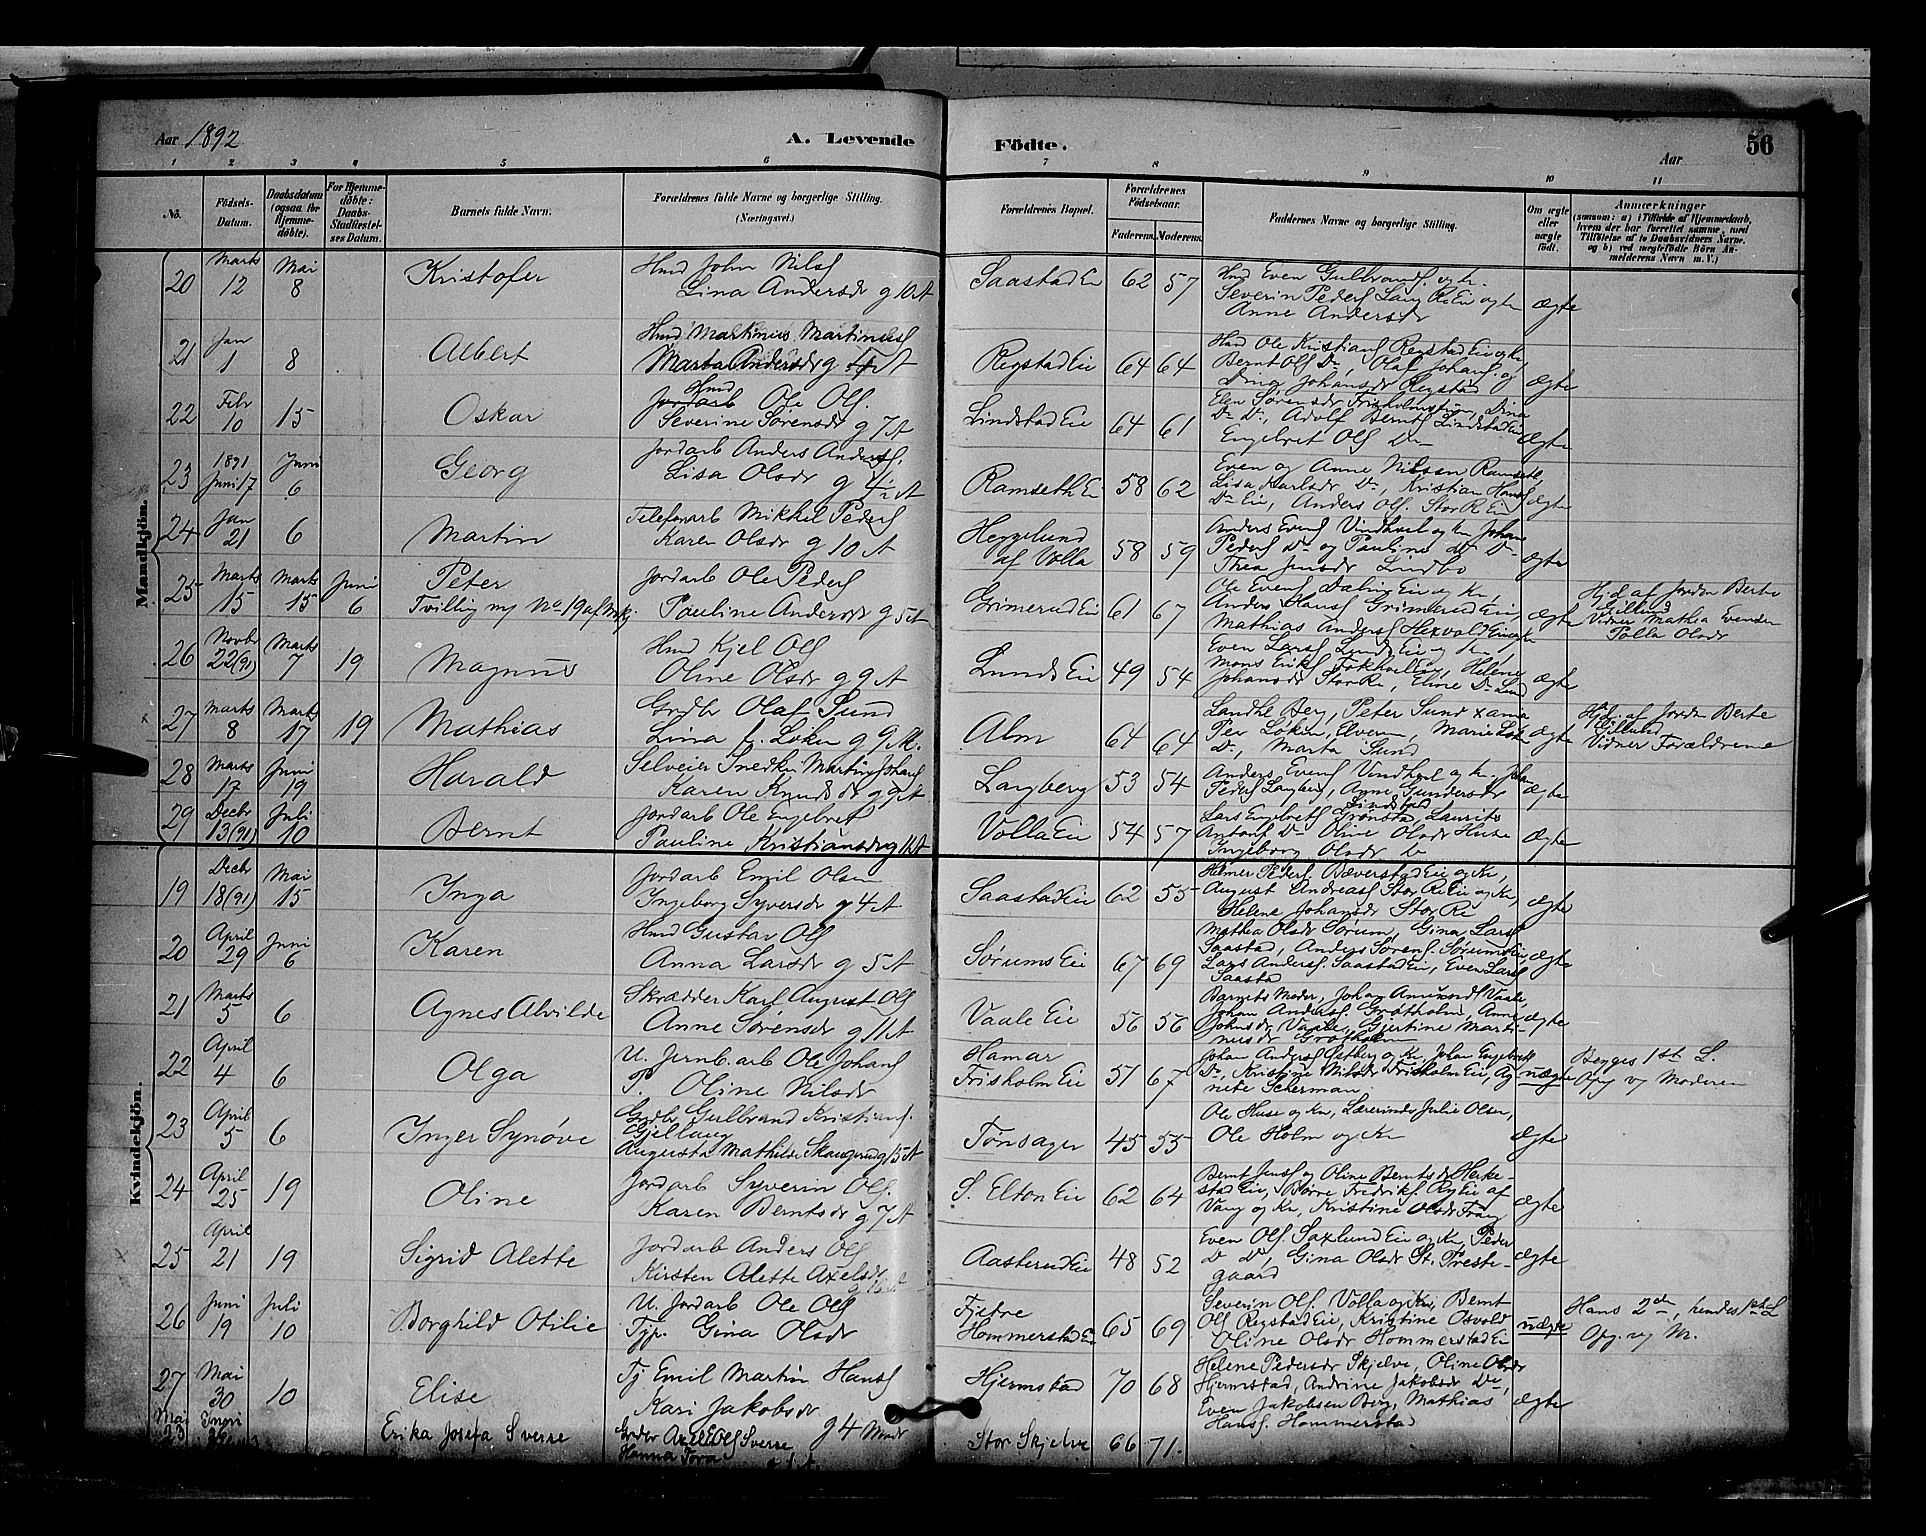 Aar 1892
A. Levende
Födte.
Aar
56
1 2 3 4 5 6 7 8 9 10 11
No.
Födsels-Datum.
Daabsdatum (ogsaa for Hjemme-döbte).
For Hjemme-döbte: Daabs-Stadfæstel-ses Datum.
Barnets fulde Navn.
Forældrenes fulde Navne og borgerlige Stilling. (Næringsvei.)
Forældrenes Bopæl.
Forældrenes Födselsaar.
Faderens. Moderens.
Faddernes Navne og borgerlige Stilling.
Om ægte eller uægte födt.
Anmærkninger
(saasom: a) i Tilfælde af Hjemmedaab, hvem der har forrettet samme, med Tilföielse af to Daabsvidners Navne, og b) ved uægtefödte Börn An-melderens Navn m. V.)
Mandkjön.
20 Marts 12 Mai 8 Kristofer Hmd John Nilss Lina Andersdr g 10 A Saastad Ei 62 57 Hmd Even Gulbrands. og kr. Severin Peders Lang Re Ei og kr Anne Andersdr ægte
21 Jan 1 8 Albert Hmd Martinius Martiniuss Marta Andersdr g A Regstad Ei 64 64 Hmd Ole Kristians Regstad Ei og kr, Bernt Ols Do, Olaf Johans. og Dina Johansdr Regstad ægte
22 Febr 10 15 Oskar Hmd Jordarb Ole Ols. Severine Sørensdr g 7 A Lindstad Ei 64 61 Elen Sørensdr, Dina Do Do, Adolf Bernts Lindstad Ei Engebret Ols Do ægte
23 1891 Juni 17 Juni 6 Georg Jordarb Anders Anders. Lisa Olsdr g 4½ A Ramseth Ei 58 62 Even og Anne Nilsen Ramseth, Lisa Karlsdr Do, Kristian Hans Do Ei, Anders Ols. Stor Re Ei ægte
24 Jan 21 6 Martin Telefonarb Mikkel Peders Karen Olsdr g 10 A Heggelund af Volla 58 59 Anders Evens Vindhvel og kr Johan Peders Do og Pauline Do Thea Jensdr Lundbo ægte
25 Marts 15 Marts 15 Juni 6 Peter Tvilling m No 19 af Kvkj. Jordarb Ole Peders Pauline Andersdr g 5 A Grimerud Ei 61 67 Ole Evens Dalin Ei og Kr, Anders Hans Grimerud Ei, Mathias Anders Hexvold Ei og kr ægte Hjd af Jordm Berte Gillund Vidner Mathea Evensen Polla Olsdr
26 Novbr 22 (91) Marts 7 19 Magnus Hmd Kjel Ols Oline Olsdr g 9 A Lunds Ei 49 54 Even Lars Lunds Ei og kr, Mons Eriks Fokhol Ei, Helene Johansdr Stor Re, Eline Do Lund ægte
27 Marts 8 Marts 17 19 Mathias Grdbr Olaf Sund Lina f. Løken g 9 M. Alm 64 64 Landh. Berg, Peter Sund Per Løken, Elverum, Marie Løken Do, Marta Sund ægte Hjd. af Jordm Berte Gillund Vidner Forældrene
28 Marts 17 Juni 19 Harald Selveier Snedker Martin Johans Karen Knudsdr g 9 A Langberg 53 54 Anders Evens Vindhvel og kr. Johan Peders Langberg, Anne Gundersdr Lindstad ægte
29 Decbr 13 (91) Juli 10 Bernt Jordarb Ole Engebrets Pauline Kristiansdr g 11 A Volla Ei 54 57 Lars Engebrets Grønsta, Laurits Antons Do Oline Olsdr Huse Ingeborg Olsdr Do ægte
Kvindekjön.
19 Decbr 18 (91) Mai 15 Inga Jordarb Emil Olsen Ingeborg Syversdr g 4 A Saastad Ei 62 55 Helmer Peders Bæverstad Ei og Kr, August Andreass Stor Re Ei og Kr, Helene Johansdr Stor Re ægte
20 April 29 Juni 6 Karen Hmd Gustav Ols Anna Larsdr g 5 A Sørums Ei 67 69 Mathea Olsdr Sørum, Gina Lars Saastad, Anders Sørens. Sørums Ei Lars Anders. Saastad Ei, Even Lars Saasta ægte
21 Marts 5 6 Agnes Alvilde Skrædder Karl August Ols Anne Sørensdr g 11 A Vaale Ei 56 56 Barnets Moder, Johan Amunds Vaale, Johan Anders Grøtholm, Anne Johnsdr Vaale, Gjertine Marti-nusdr Grøtholm ægte
22 April 4 6 Olga U. Jernb.arb Ole Johans P. Oline Nilsdr Hamar Frisholm Ei 51 67 Johan Anders Østberg og Kr, Johan Engebrets Do, Kristine Nilsdr Frisholm Ei Ag nete Scherman. uægte Begges 1ste L. Opg v Moderen
23 April 5 6 Inger Synøve Grdbr Gulbrand Kristians. Gjellaug Augusta Mathilde Skaugrud g 15 A Tønsager 45 55 Ole Huse og Kr, Lærerinde Julie Olsen, Ole Holm og Kr ægte
24 April 25 19 Oline Jordarb Syverin Ols. Karen Berntsdr g 7 A S. Elton Ei 62 64 Bernt Jens og Oline Berntsdr Herke-stad Ei, Børre Fredriks. Ry Ei af Vang og Kr, Kristine Olsdr Frang ægte
25 April 21 19 Sigrid Alette Jordarb Anders Ols Kirsten Alette Axelsdr Aasterud Ei 48 52 Even Ols Saxlund Ei og Kr, Peder Do Do, Gina Olsdr St. Preste-gaard ægte
26 Juni 19 Juli 10 Borghild Otilie U. Jordarb Ole Ols Typ. Gina Olsdr Fjetre Hommerstad Ei 65 69 Severin Ols. Volla og Kr, Bernt Ols Regstad Ei, Kristine Osvold Oline Olsdr Hommerstad Ei uægte Hans 2det, hendes 1ste L Opg. v M.
27 Mai 30 10 Elise Tj. Emil Martin Hans Kari Jakobsdr g 4 Mndr Hjermstad 70 68 Helene Pedersdr Skjelve, Oline Olsdr Hjermstad, Andrine Jakobsdr Do, Even Jakobsen Berg, Mathias Hans. Hommerstad ægte
Mai 23 Juni 26 Erika Josefa Sverre Grdbr Axel Ols Sverre Hanna Tora Stor Skjelve 66 71.